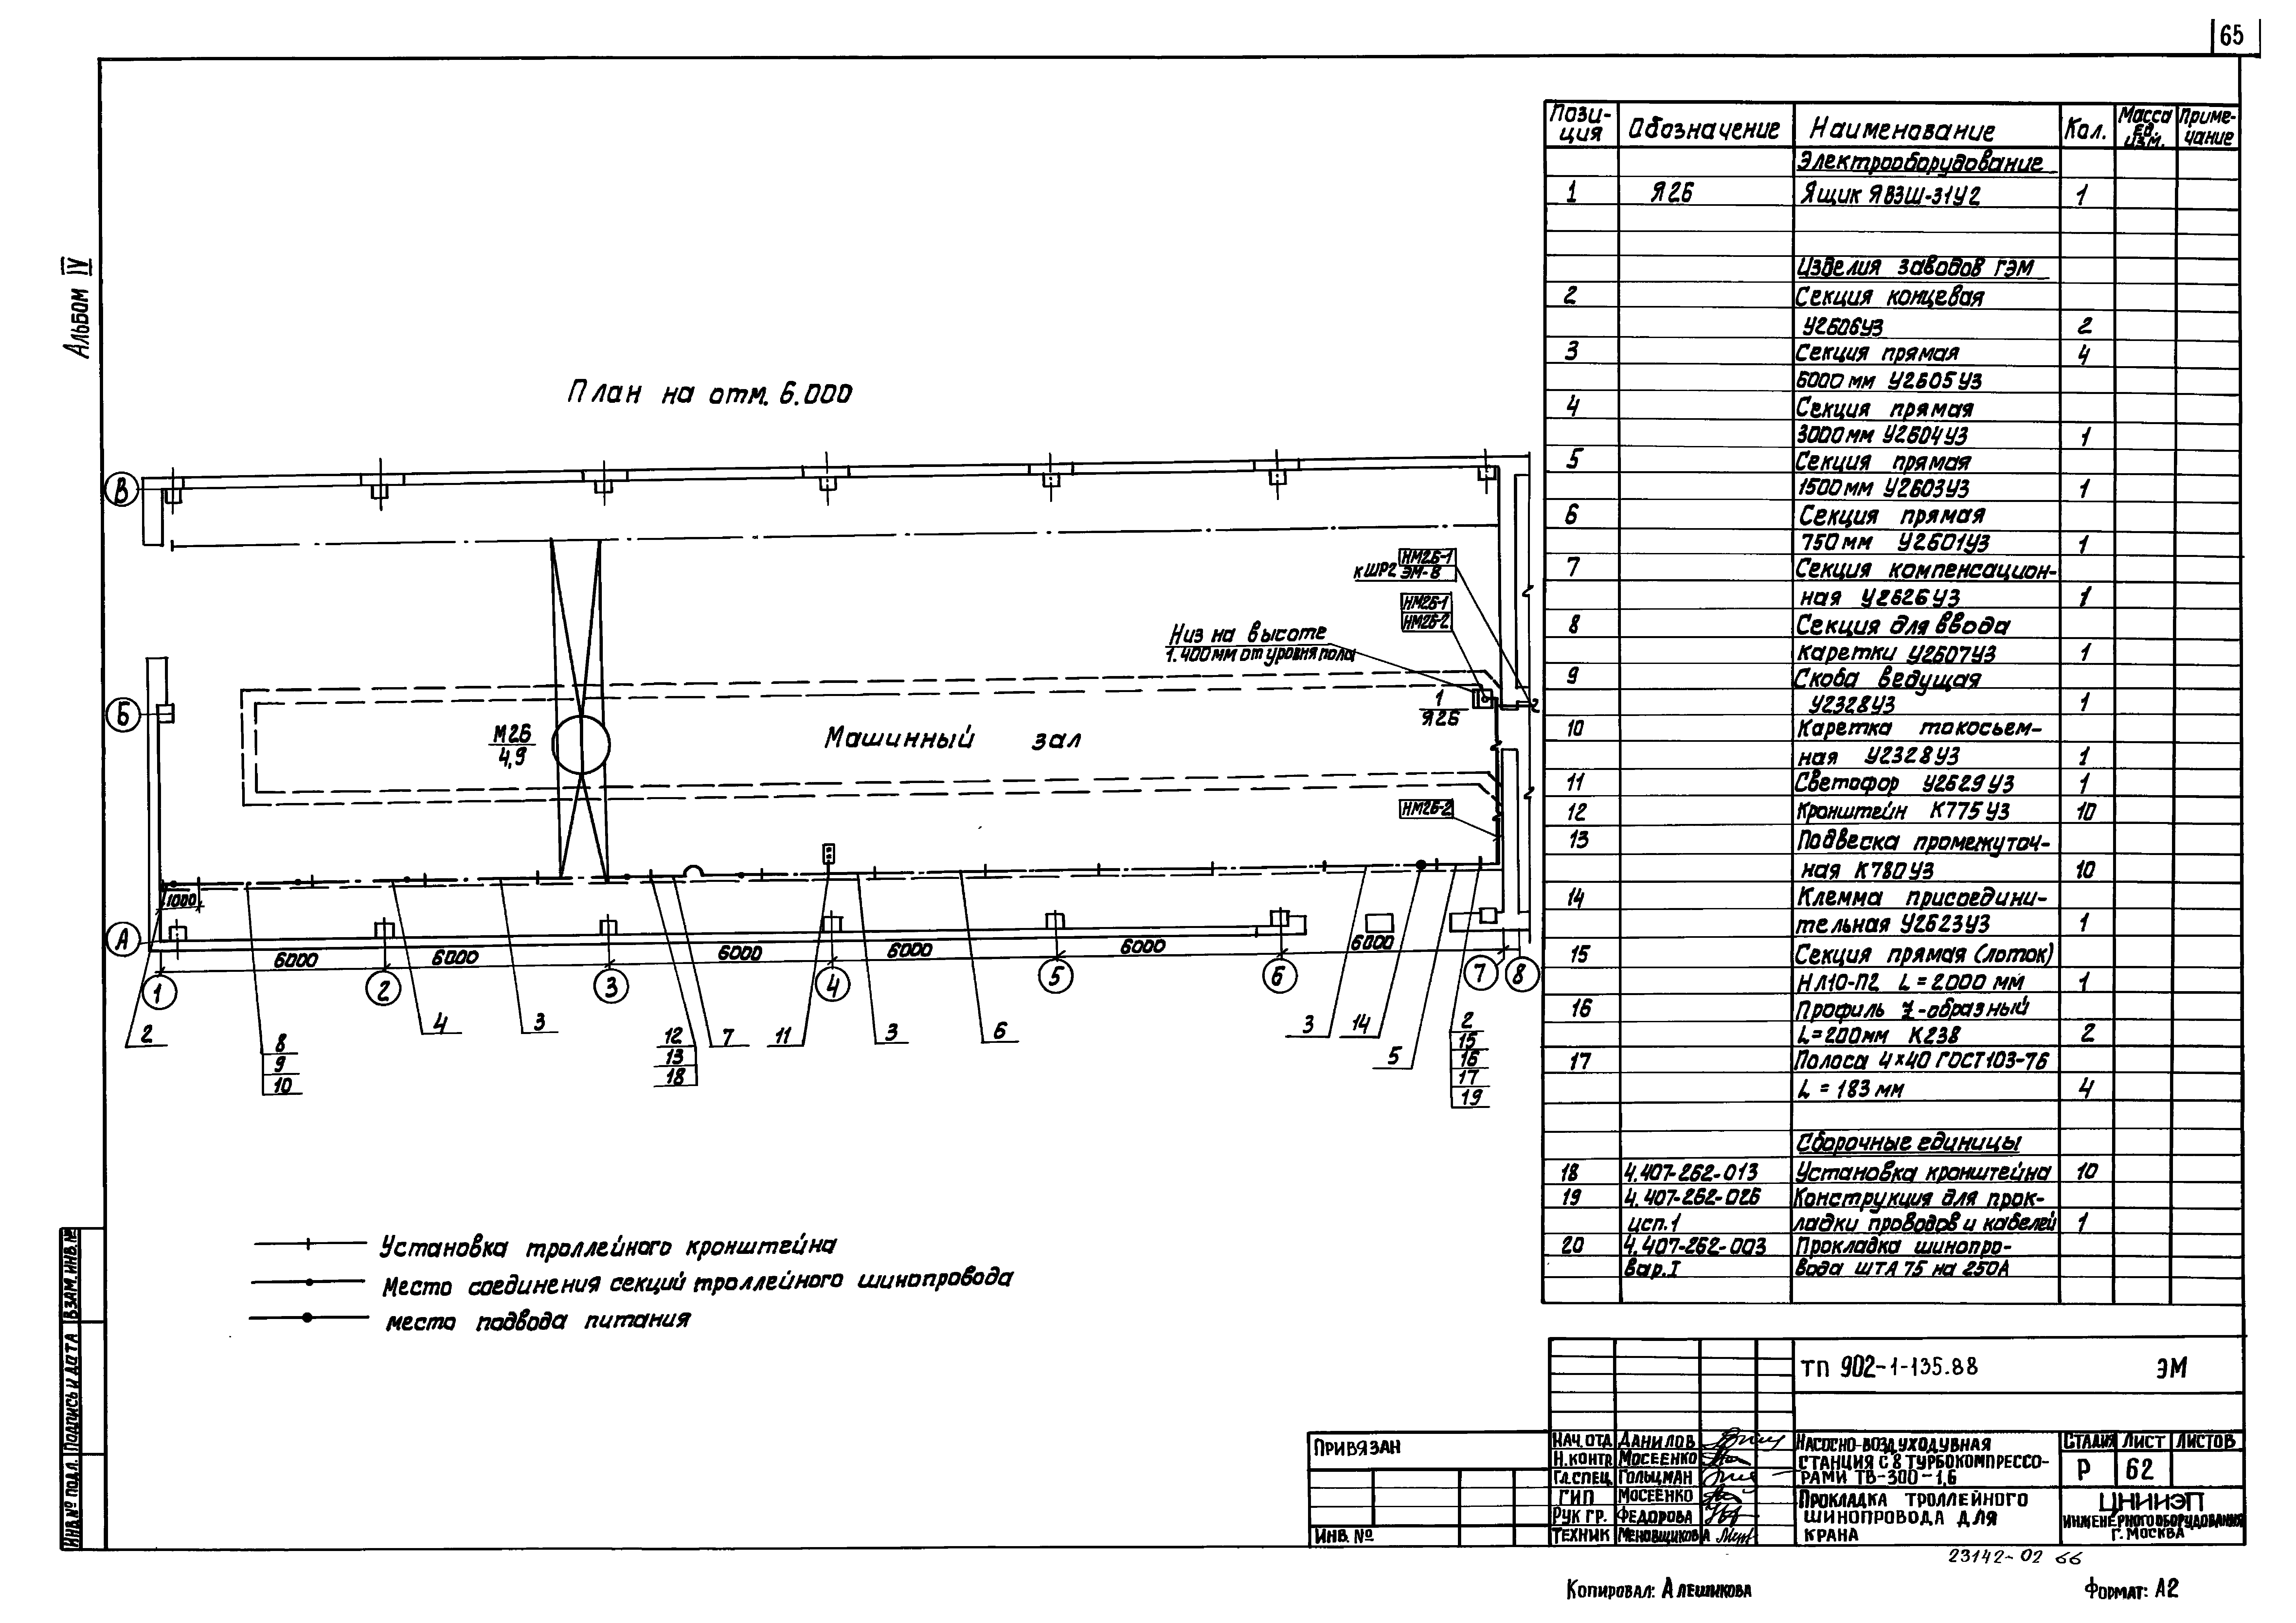 65
Альбом IV
План на отм. 6.000
В
Б
А
кШР2
НМ2Б-1
ЭМ-8
НМ2Б-1
НМ2Б-2
Низ на высоте
1.400 мм от уровня пола
1
Я2Б
М2Б
4,9
Машинный зал
НМ2Б-2
1000
6000
6000
6000
6000
6000
6000
1
2
3
4
5
6
7
8
2
8
9
10
4
3
12
13
18
7
11
3
6
3
14
5
2
15
16
17
19
Установка троллейного кронштейна
Место соединения секций троллейного шинопровода
место подвода питания
Пози-ция Обозначение Наименование Кол. Масса ед. изм. Приме-чание
Электрооборудование
1 Я2Б Ящик ЯВЗШ-31У2 1
Изделия заводов ГЭМ
2 Секция концевая
У2606У3 2
3 Секция прямая 4
6000 мм У2605У3
4 Секция прямая
3000 мм У2604У3 1
5 Секция прямая
1500 мм У2603У3 1
6 Секция прямая
750 мм У2601У3 1
7 Секция компенсацион-
ная У2626У3 1
8 Секция для ввода
каретки У2607У3 1
9 Скоба ведущая
У2328У3 1
10 Каретка токосъем-
ная У2328У3 1
11 Светофор У2629У3 1
12 Кронштейн К775У3 10
13 Подвеска промежуточ-
ная К780У3 10
14 Клемма присоедини-
тельная У2623У3 1
15 Секция прямая (лоток)
НЛ10-П2 L=2000 мм 1
16 Профиль Z-образный
L=200мм К238 2
17 Полоса 4×40 ГОСТ103-76
L = 183 мм 4
Сборочные единицы
18 4.407-262-013 Установка кронштейна 10
19 4.407-262-026 Конструкция для прок-
исп.1 ладки проводов и кабелей 1
20 4.407-262-003 Прокладка шинопро-
вар.I вода ШТА 75 на 250А
ТП 902-1-135.88 ЭМ
Привязан
Инв. №
Нач.отд Данилов
Н.контр Мосеенко
Гл.спец Гольцман
ГИП Мосеенко
Рук гр. Федорова
Техник Меновщикова
Насосно-воздуходувная
станция с 8 турбокомпрессо-
рами ТВ-300-1,6
Прокладка троллейного
шинопровода для
крана
Стадия Лист Листов
Р 62
ЦНИИЭП
инженерного оборудования
г. Москва
23142-02 66
Копировал: Алешикова
Формат: А2
Инв.№ подл. Подпись и дата Взам.инв.№